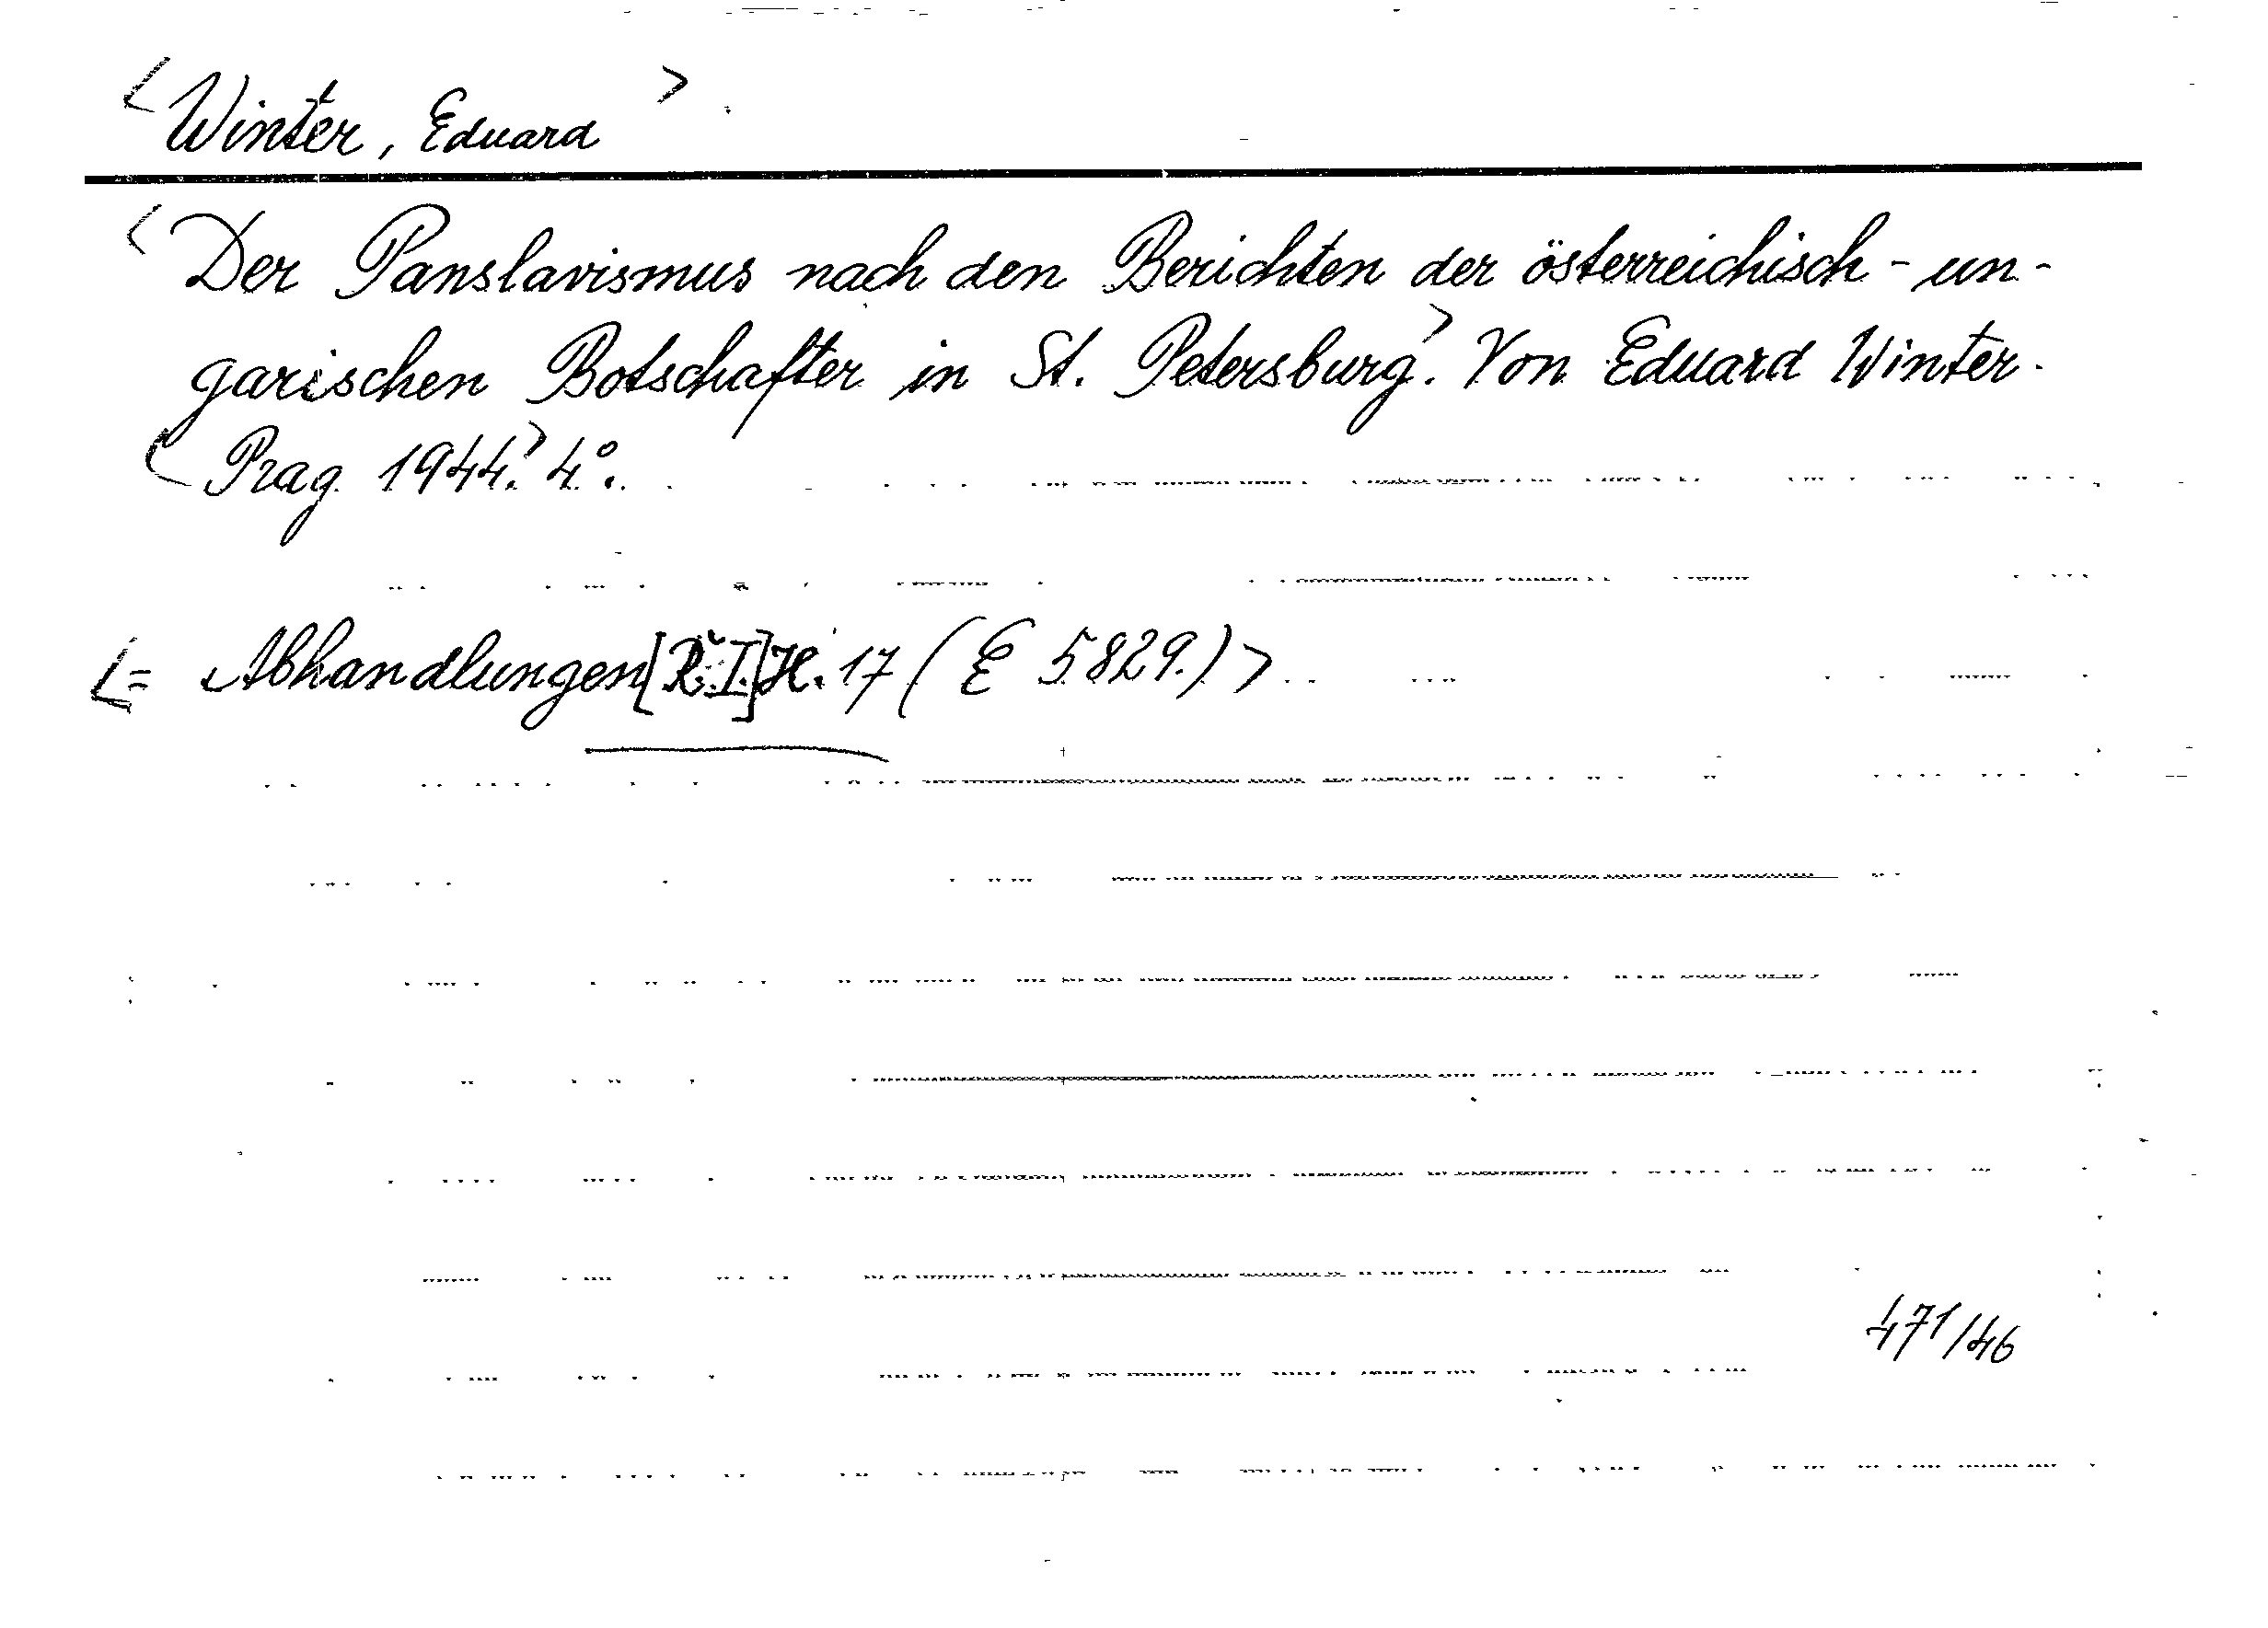 <Winter, Eduard>.
<Der Panslavismus nach den Berichten der österreichisch-un-
garischen Botschafter in St. Petersburg>. Von Eduard Winter.
<Prag 1944.> 4°.
<= Abhandlungen [R. I.] H. 17 (E 5829.)>
471/46